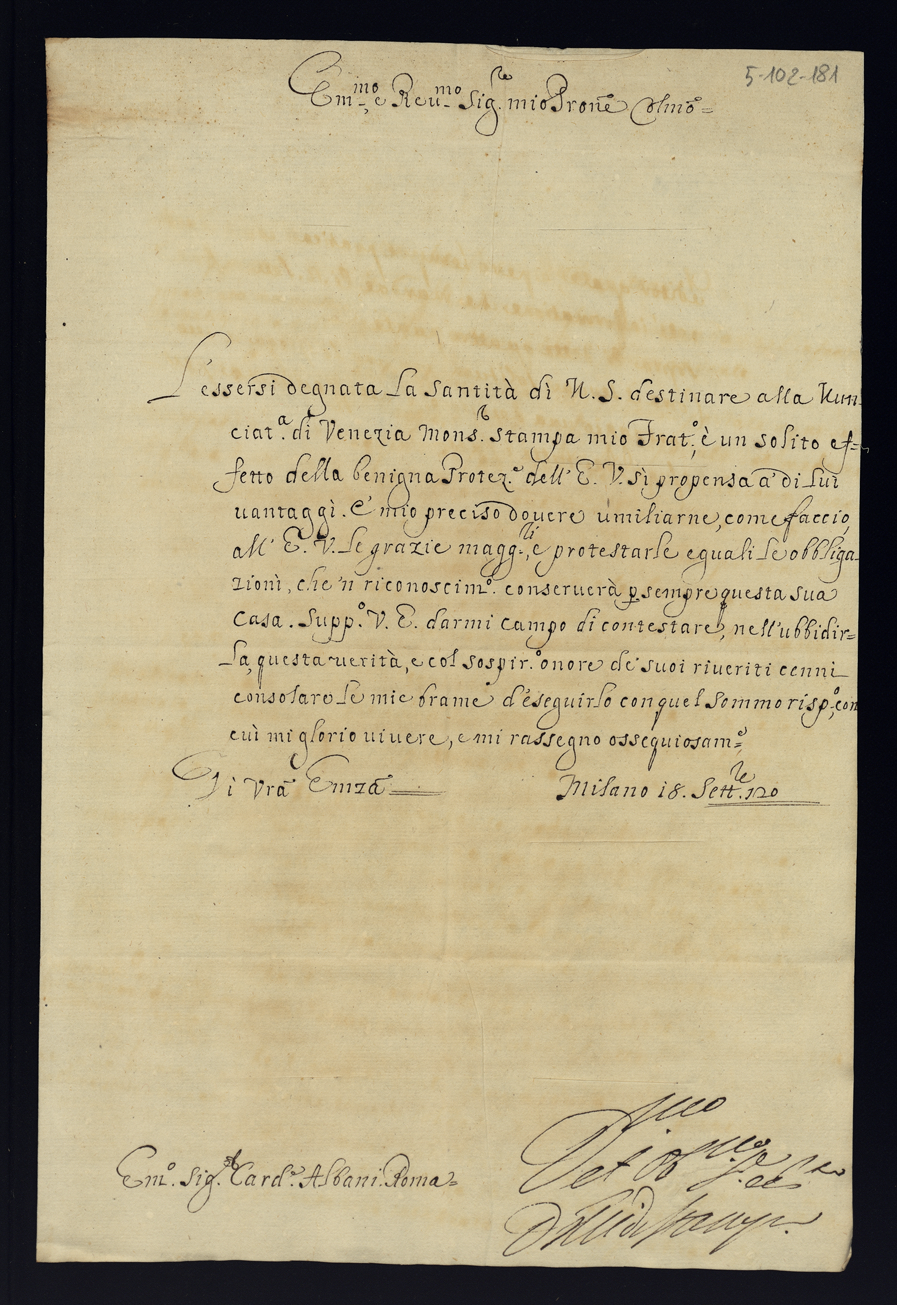 5-102-181
Em.mo e Reu.mo Sig.re mio Pron̄e Colmō=
L'essersi degnata La Santità di N. S. destinare alla Nun-
ciat.a di Venezia Mons.r Stampa mio Frat.o, è un solito ef-
fetto della benigna Protez.e dell' E. V. sì propensa a di Lui
uantaggi. E' mio preciso douere umiliarne, come faccio,
all' E. V. Le grazie magg.ri, e protestarle eguali Le obbliga-
zioni, che 'n riconoscim.o conseruerà p sempre questa sua
Casa. Supp.o V. E. darmi campo di contestare, nell'ubbidir-
La, questa uerità, e col sospir.o onore de' suoi riueriti cenni
consolare Le mie brame d'eseguirlo con quel Sommo risp.o, con
cui mi glorio uiuere, e mi rassegno ossequiosam.e
Di Vrā Emzā
Milano 18. Sett.re 720
Em.o Sig.r Card.e Albani. Roma=